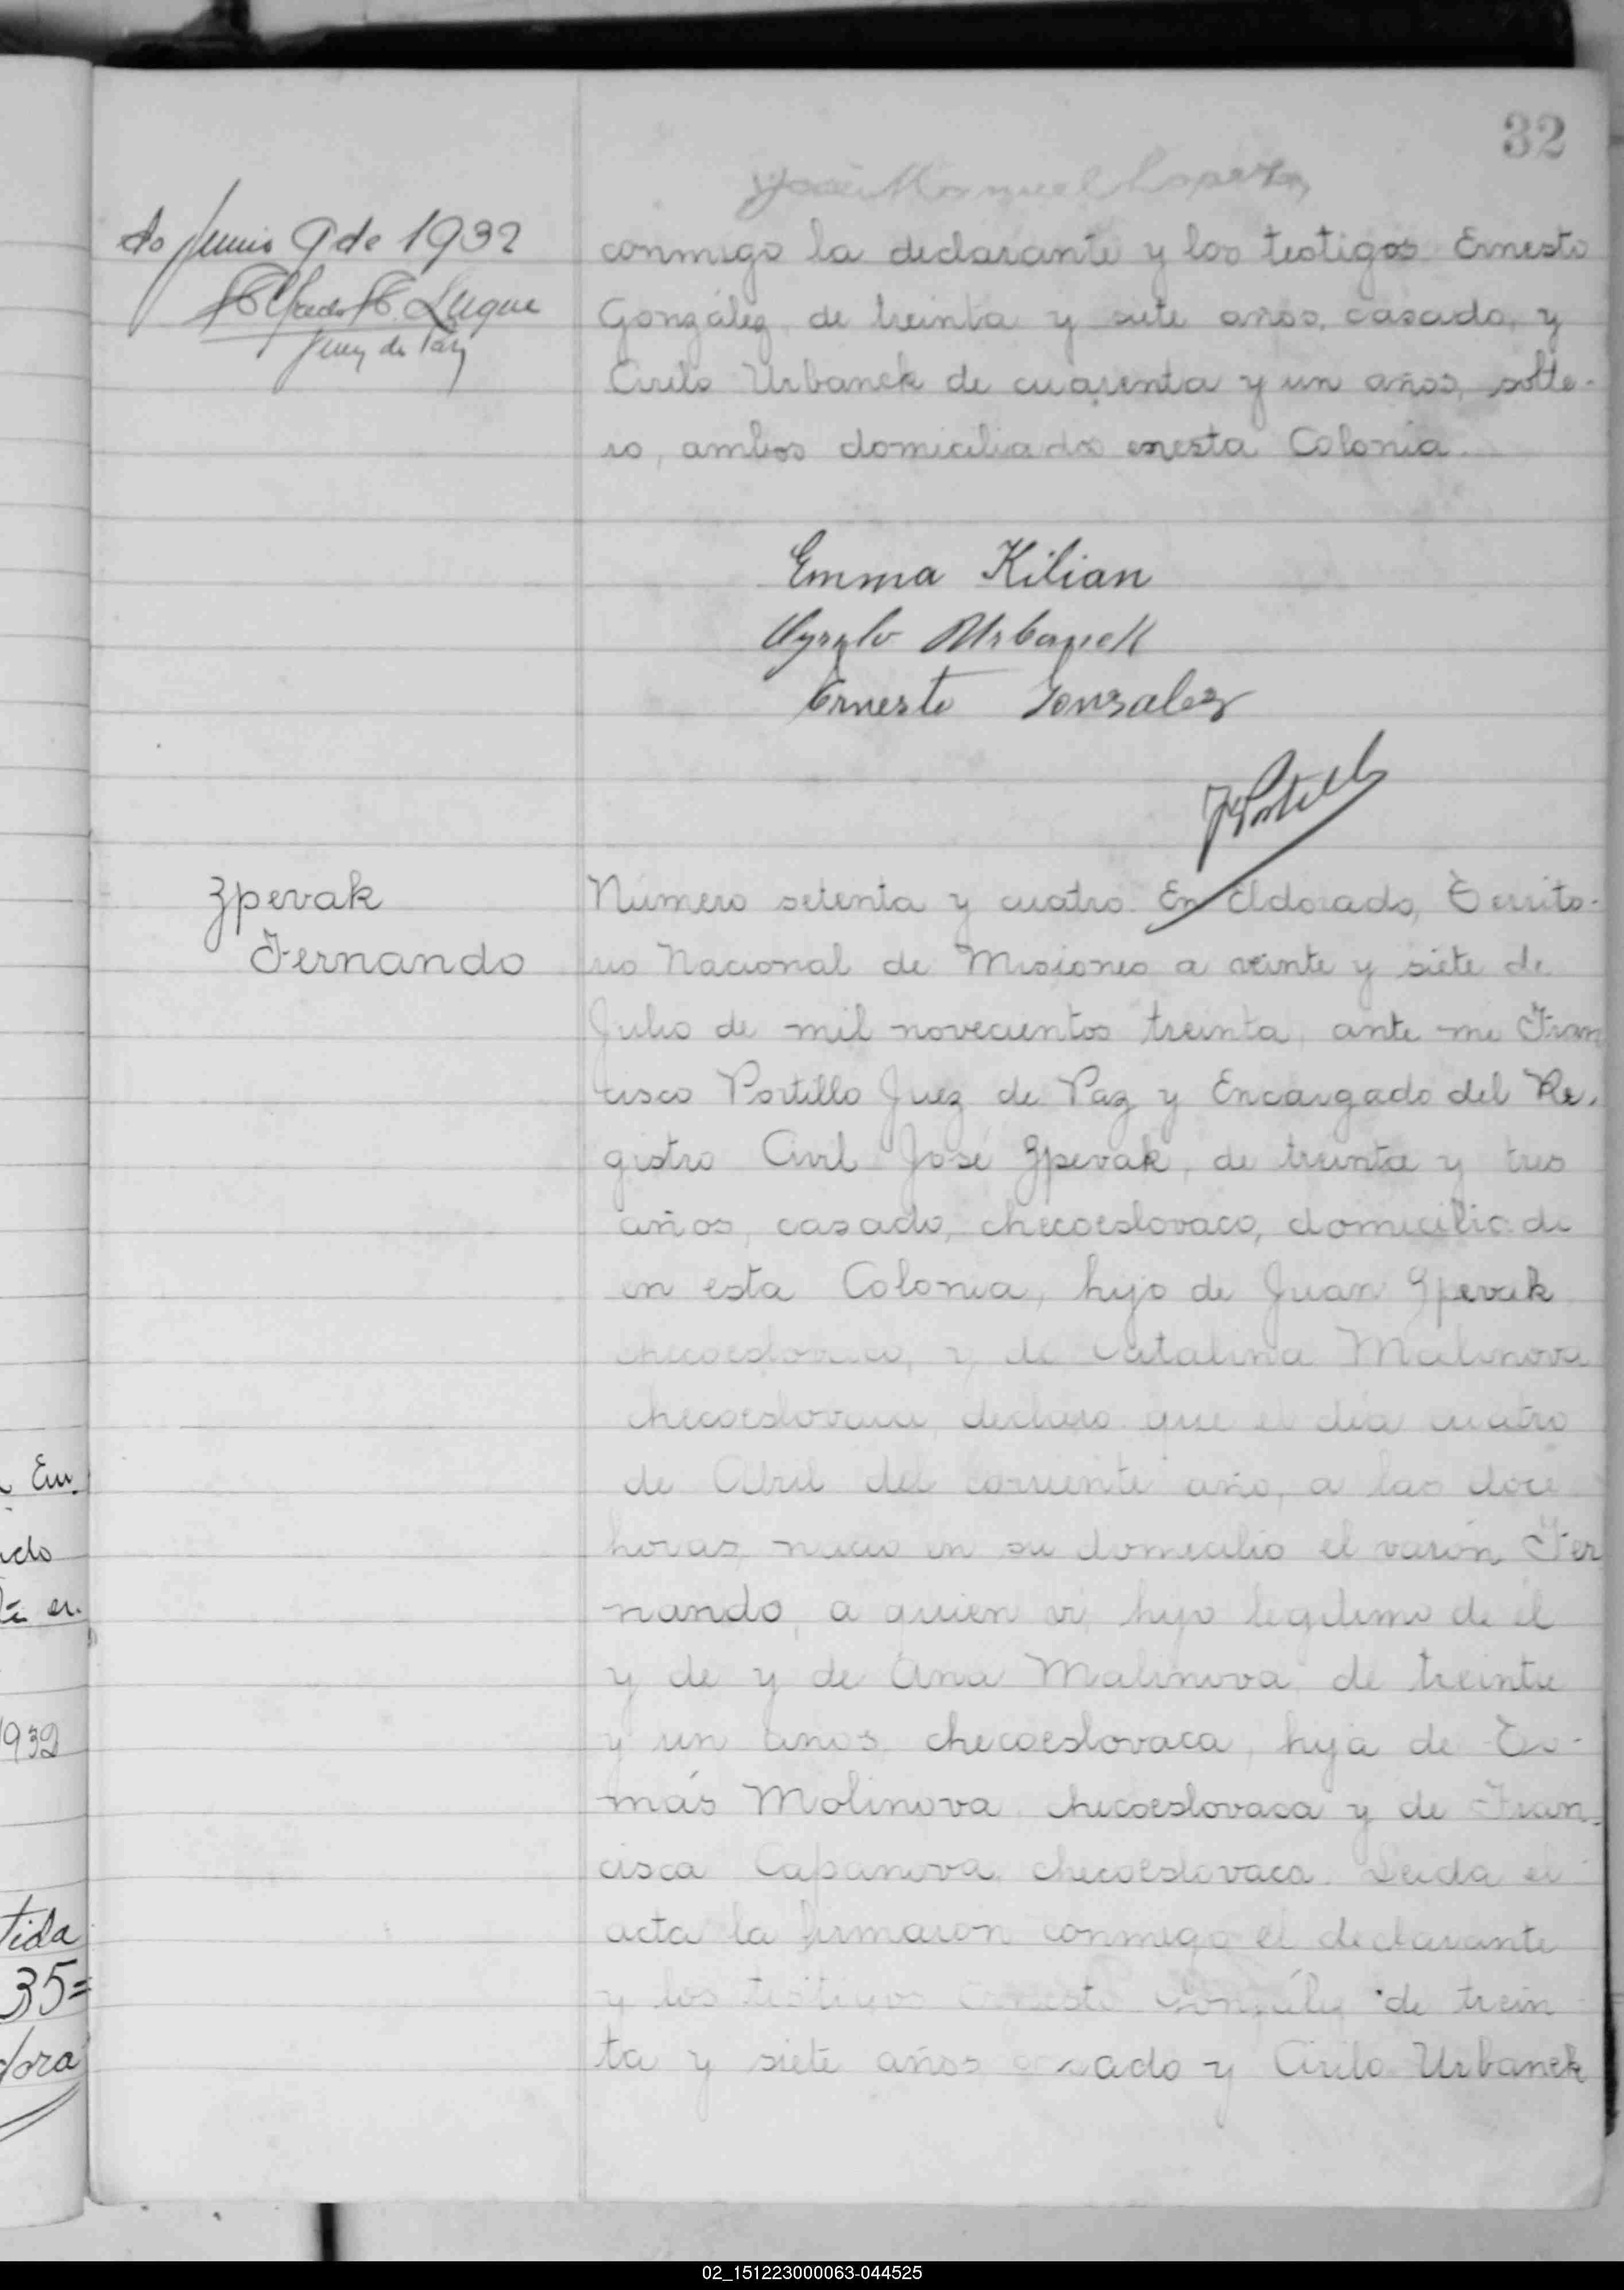 32
José Manuel Lopez
do Junio 9 de 1932
Luque
Juez de Paz
conmigo la declarante y los testigos Ernesto
González, de treinta y siete años, casado, y
Cirilo Urbanek de cuarenta y un años, solte-
ro, ambos domiciliados enesta Colonia.
Emma Kilian
Cyrylo Urbanek
Ernesto Gonzalez
FPortillo
Zpevak
Fernando
Número setenta y cuatro. En Eldorado, Territo-
rio Nacional de Misiones a veinte y siete de
Julio de mil novecientos treinta, ante mi Fran
cisco Portillo Juez de Paz y Encargado del Re.
gistro Civil José Zpevak, de treinta y tres
años, casado, checoeslovaco, domicilia do
en esta Colonia, hijo de Juan Zpevak
checoeslovaco, y de Catalina Malinova
checoeslovaca declaro que el día cuatro
de Abril del corriente año, a las doce
horas, nacio en su domicilio el varón Fer
nando, a quien vi, hijo legitimo de él
y de y de Ana Malinova de treinta
y un años checoeslovaca, hija de To-
más Molinova checoeslovaca y de Fran-
cisca Capanova checoeslovaca. Leida el
acta la firmaron conmigo el declarante
y los testigos Ernesto González de trein
ta y siete años casado y Cirilo Urbanek
En.
ado
er.
1932
tida
35=
dora
02_151223000063-044525